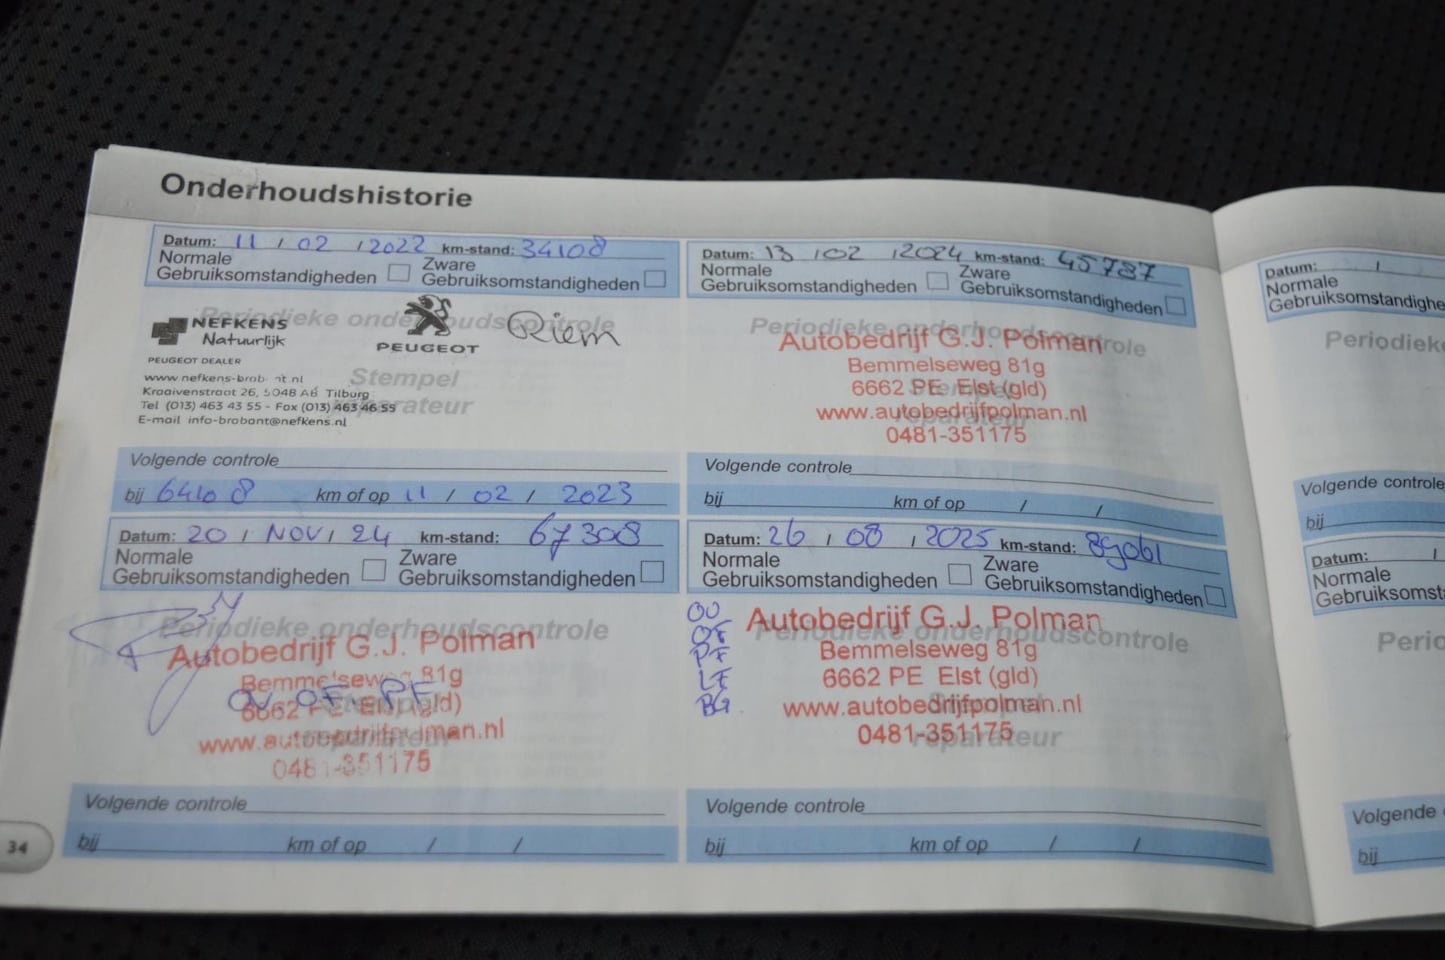 Onderhoudshistorie
Datum: 11 / 02 / 2022 km-stand: 34108
Normale
Gebruiksomstandigheden
Zware
Gebruiksomstandigheden
Periodieke onderhoudscontrole
NEFKENS
Natuurlijk
PEUGEOT DEALER
PEUGEOT
Riem
www.nefkens-brabant.nl
Kraaivenstraat 26, 5048 AB Tilburg
Tel (013) 463 43 55 - Fax (013) 463 46 55
E-mail info-brabant@nefkens.nl
Stempel
reparateur
Volgende controle
bij 64108 km of op 11 / 02 / 2023
Datum: 13 / 02 / 2024 km-stand: 45787
Normale
Gebruiksomstandigheden
Zware
Gebruiksomstandigheden
Periodieke onderhoudscontrole
Autobedrijf G.J. Polman
Bemmelseweg 81g
6662 PE Elst (gld)
www.autobedrijfpolman.nl
0481-351175
Stempel
reparateur
Volgende controle
bij km of op / /
Datum: 20 / NOV / 24 km-stand: 67308
Normale
Gebruiksomstandigheden
Zware
Gebruiksomstandigheden
Periodieke onderhoudscontrole
Autobedrijf G.J. Polman
Bemmelseweg 81g
OV OF PF
6662 PE Elst (gld)
www.autobedrijfpolman.nl
0481-351175
Stempel
reparateur
Volgende controle
bij km of op / /
Datum: 26 / 08 / 2025 km-stand: 89061
Normale
Gebruiksomstandigheden
Zware
Gebruiksomstandigheden
Periodieke onderhoudscontrole
OV
OF
PF
LF
BG
Autobedrijf G.J. Polman
Bemmelseweg 81g
6662 PE Elst (gld)
www.autobedrijfpolman.nl
0481-351175
Stempel
reparateur
Volgende controle
bij km of op / /
34
Datum: /
Normale
Gebruiksomstandighe
Periodieke
Volgende controle
bij
Datum: /
Normale
Gebruiksomst
Perio
Volgende
bij